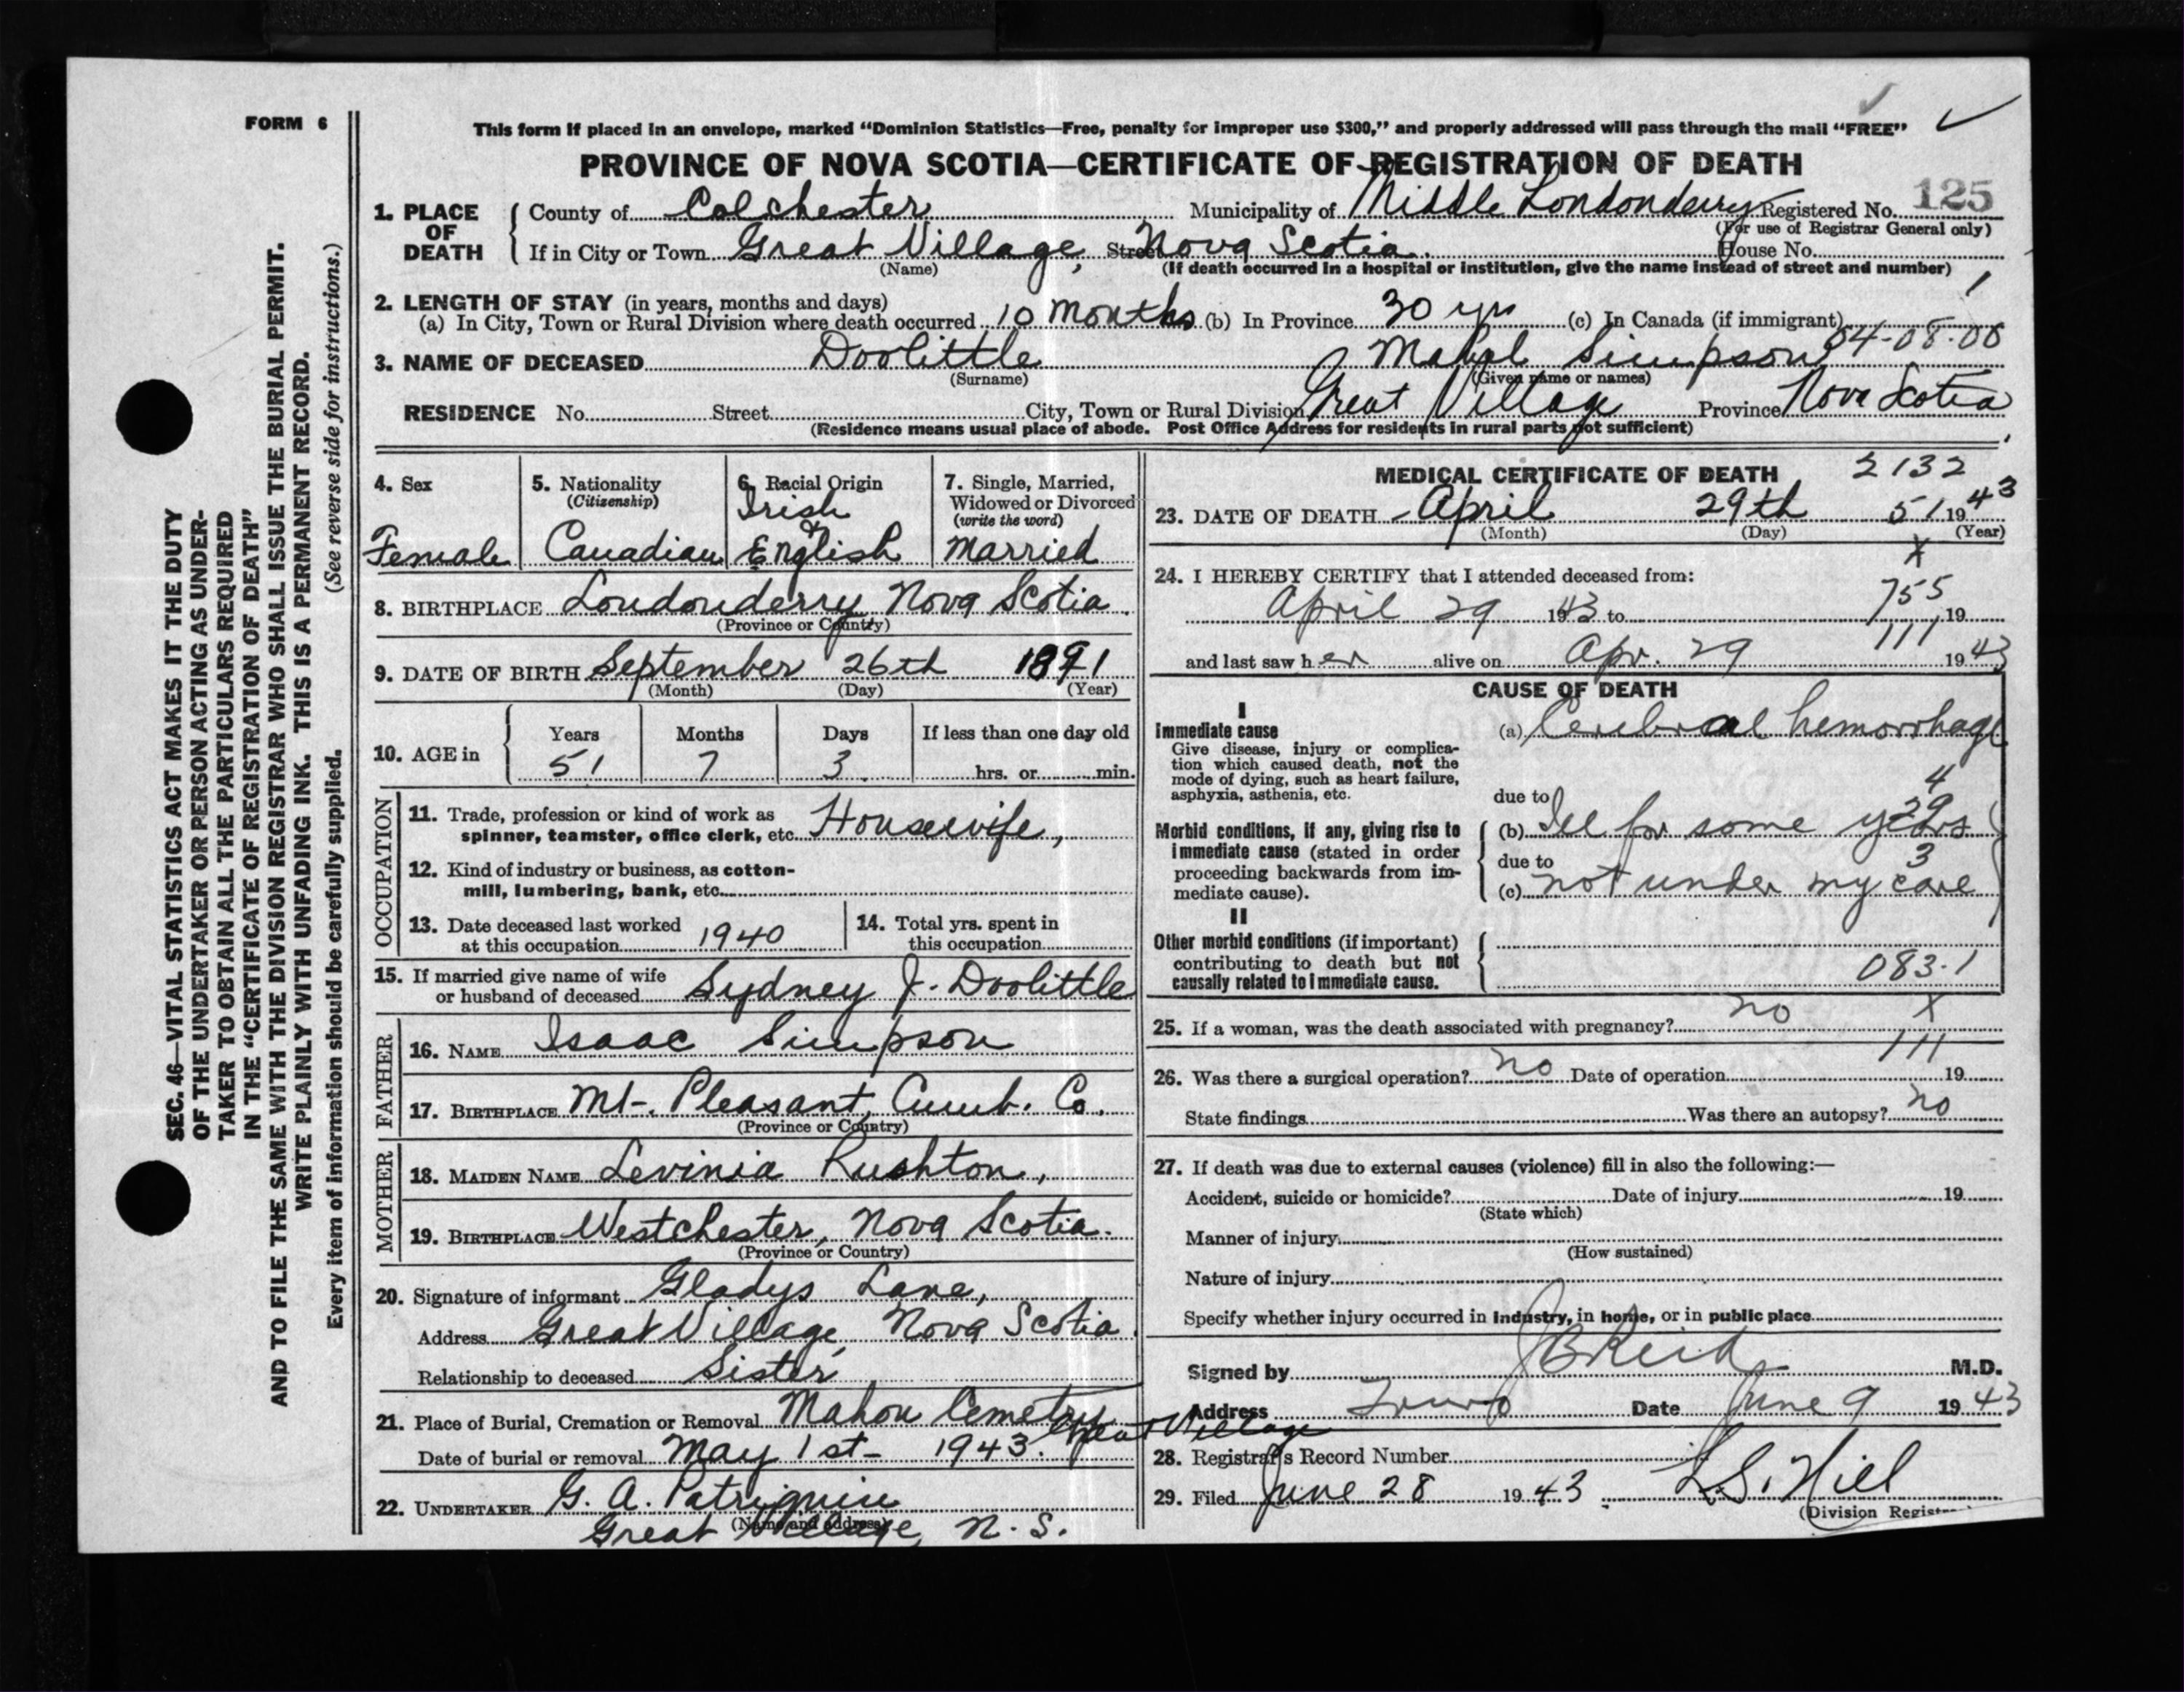 FORM 6
This form if placed in an envelope, marked “Dominion Statistics—Free, penalty for improper use $300,” and properly addressed will pass through the mail “FREE”
PROVINCE OF NOVA SCOTIA—CERTIFICATE OF REGISTRATION OF DEATH
1. PLACE OF DEATH
County of Colchester Municipality of Middle Londonderry Registered No. 125
(For use of Registrar General only)
If in City or Town Great Village, Street Nova Scotia. House No.
(Name) (If death occurred in a hospital or institution, give the name instead of street and number)
2. LENGTH OF STAY (in years, months and days)
(a) In City, Town or Rural Division where death occurred 10 months (b) In Province 30 yrs (c) In Canada (if immigrant)
04-08-00
3. NAME OF DECEASED Doolittle Mabel Simpson
(Surname) (Given name or names)
RESIDENCE No. Street City, Town or Rural Division Great Village Province Nova Scotia
(Residence means usual place of abode. Post Office Address for residents in rural parts not sufficient)
4. Sex
Female
5. Nationality
(Citizenship)
Canadian
6. Racial Origin
Irish
&
English
7. Single, Married,
Widowed or Divorced
(write the word)
Married
8. BIRTHPLACE Londonderry Nova Scotia.
(Province or Country)
9. DATE OF BIRTH September 26th 1891
(Month) (Day) (Year)
10. AGE in
Years Months Days If less than one day old
51 7 3 hrs. or min.
OCCUPATION
11. Trade, profession or kind of work as
spinner, teamster, office clerk, etc. Housewife,
12. Kind of industry or business, as cotton-
mill, lumbering, bank, etc.
13. Date deceased last worked
at this occupation 1940
14. Total yrs. spent in
this occupation
15. If married give name of wife
or husband of deceased Sydney J. Doolittle
FATHER
16. NAME Isaac Simpson
17. BIRTHPLACE Mt. Pleasant, Cumb. Co.
(Province or Country)
MOTHER
18. MAIDEN NAME Levinia Rushton,
19. BIRTHPLACE Westchester, Nova Scotia.
(Province or Country)
20. Signature of informant Gladys Lane,
Address Great Village, Nova Scotia.
Relationship to deceased Sister
21. Place of Burial, Cremation or Removal Mahon Cemetry
Great Village
Date of burial or removal May 1st - 1943.
22. UNDERTAKER G. A. Patriquin
(Name and address)
Great Village, N. S.
MEDICAL CERTIFICATE OF DEATH 2132
23. DATE OF DEATH April 29th 51 1943
(Month) (Day) (Year)
X
24. I HEREBY CERTIFY that I attended deceased from:
755
April 29 1943 to 19
111
and last saw her alive on Apr. 29 1943
CAUSE OF DEATH
I
Immediate cause
Give disease, injury or complica-
tion which caused death, not the
mode of dying, such as heart failure,
asphyxia, asthenia, etc.
(a) Cerebral hemorrhage
4
due to
29
Morbid conditions, if any, giving rise to
immediate cause (stated in order
proceeding backwards from im-
mediate cause).
(b) Ill for some years
due to
3
(c) not under my care
II
Other morbid conditions (if important)
contributing to death but not
causally related to immediate cause.
083.1
X
25. If a woman, was the death associated with pregnancy? no
111
26. Was there a surgical operation? no Date of operation 19
State findings Was there an autopsy? no
27. If death was due to external causes (violence) fill in also the following:—
Accident, suicide or homicide? Date of injury 19
(State which)
Manner of injury
(How sustained)
Nature of injury
Specify whether injury occurred in Industry, in home, or in public place
Signed by J B Reid M.D.
Address Truro Date June 9 1943
28. Registrar's Record Number
29. Filed June 28 1943 L.S. Hill
(Division Registrar
SEC. 46—VITAL STATISTICS ACT MAKES IT THE DUTY
OF THE UNDERTAKER OR PERSON ACTING AS UNDER-
TAKER TO OBTAIN ALL THE PARTICULARS REQUIRED
IN THE “CERTIFICATE OF REGISTRATION OF DEATH”
AND TO FILE THE SAME WITH THE DIVISION REGISTRAR WHO SHALL ISSUE THE BURIAL PERMIT.
WRITE PLAINLY WITH UNFADING INK. THIS IS A PERMANENT RECORD.
Every item of information should be carefully supplied. (See reverse side for instructions.)